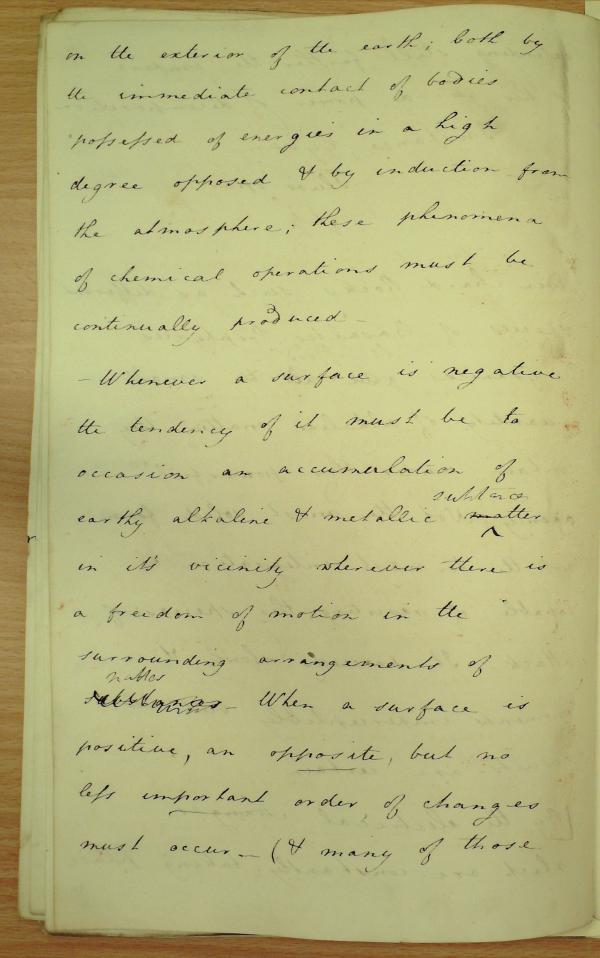 on the exterior of the earth; both by
the immediate contact of bodies
possessed of energies in a high
degree opposed & by induction from
the atmosphere; these phenomena
of chemical operations must be
continually produced –
– Whenever a surface is negative
the tendency of it must be to
occasion an accumulation of
substance
earthy alkaline & metallic matter
in it's vicinity wherever there is
a freedom of motion in the
surrounding arrangements of
substances – When a surface is
positive, an opposite, but no
less important order of changes
must occur – (& many of those